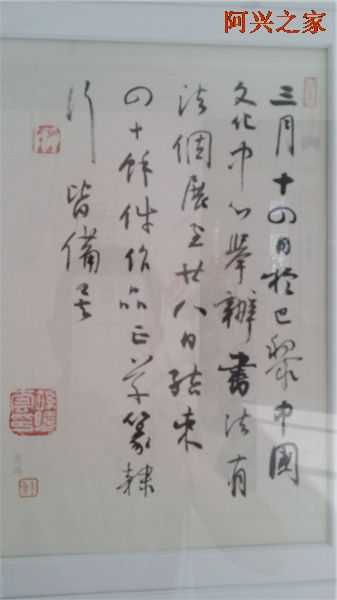 阿兴之家
三月十四日於巴黎中國
文化中心舉辦書法有
法個展至廿八日結束
四十餘件作品正草篆隸
行皆備矣